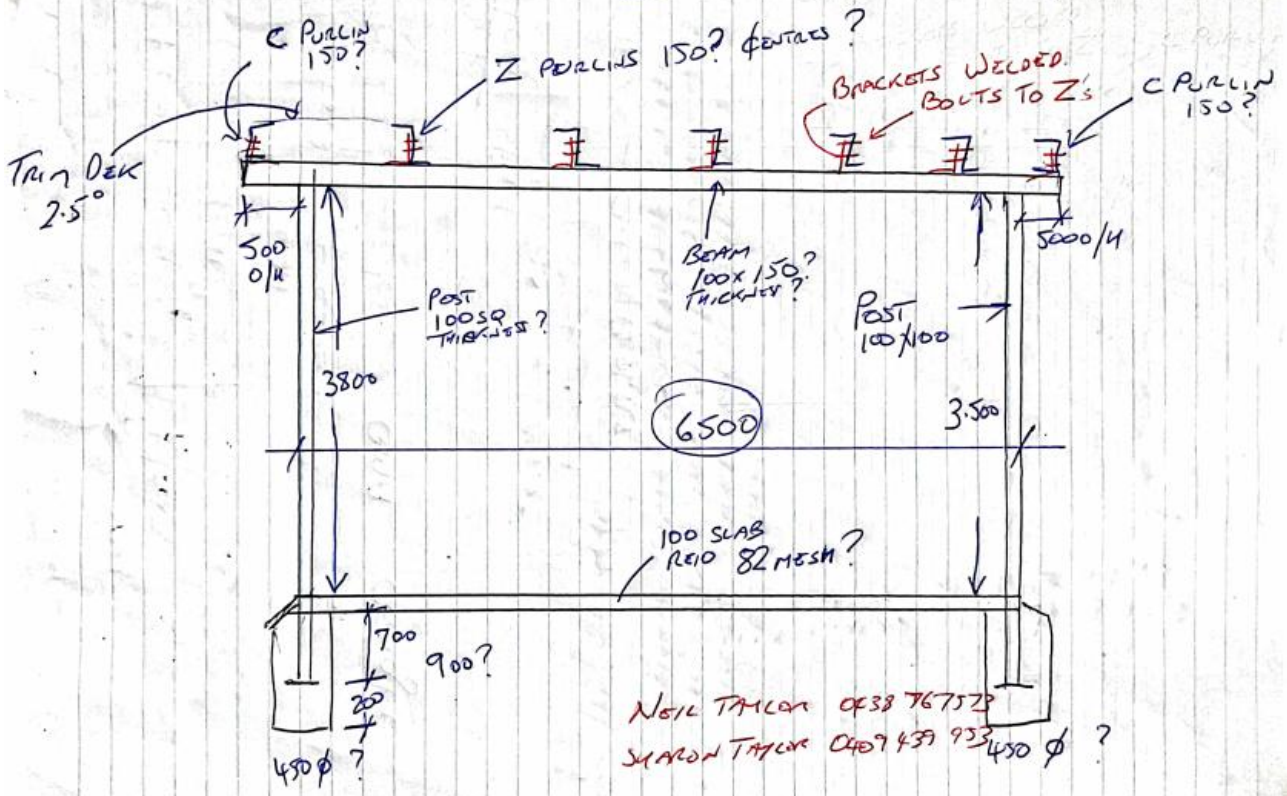 C PURLIN
150?
Z PURLINS 150? CENTRES ?
BRACKETS WELDED.
BOLTS TO Z's
C PURLIN
150?
TRIM DEK
2.5°
500
O/H
POST
100SQ
THICKNESS?
3800
BEAM
100x150?
THICKNESS?
POST
100x100
5000/H
6500
3.500
100 SLAB
REIO 82 MESH?
700
900?
200
450 Ø ?
NEIL TAYLOR
SHARON TAYLOR 0409 439 953
450 Ø ?